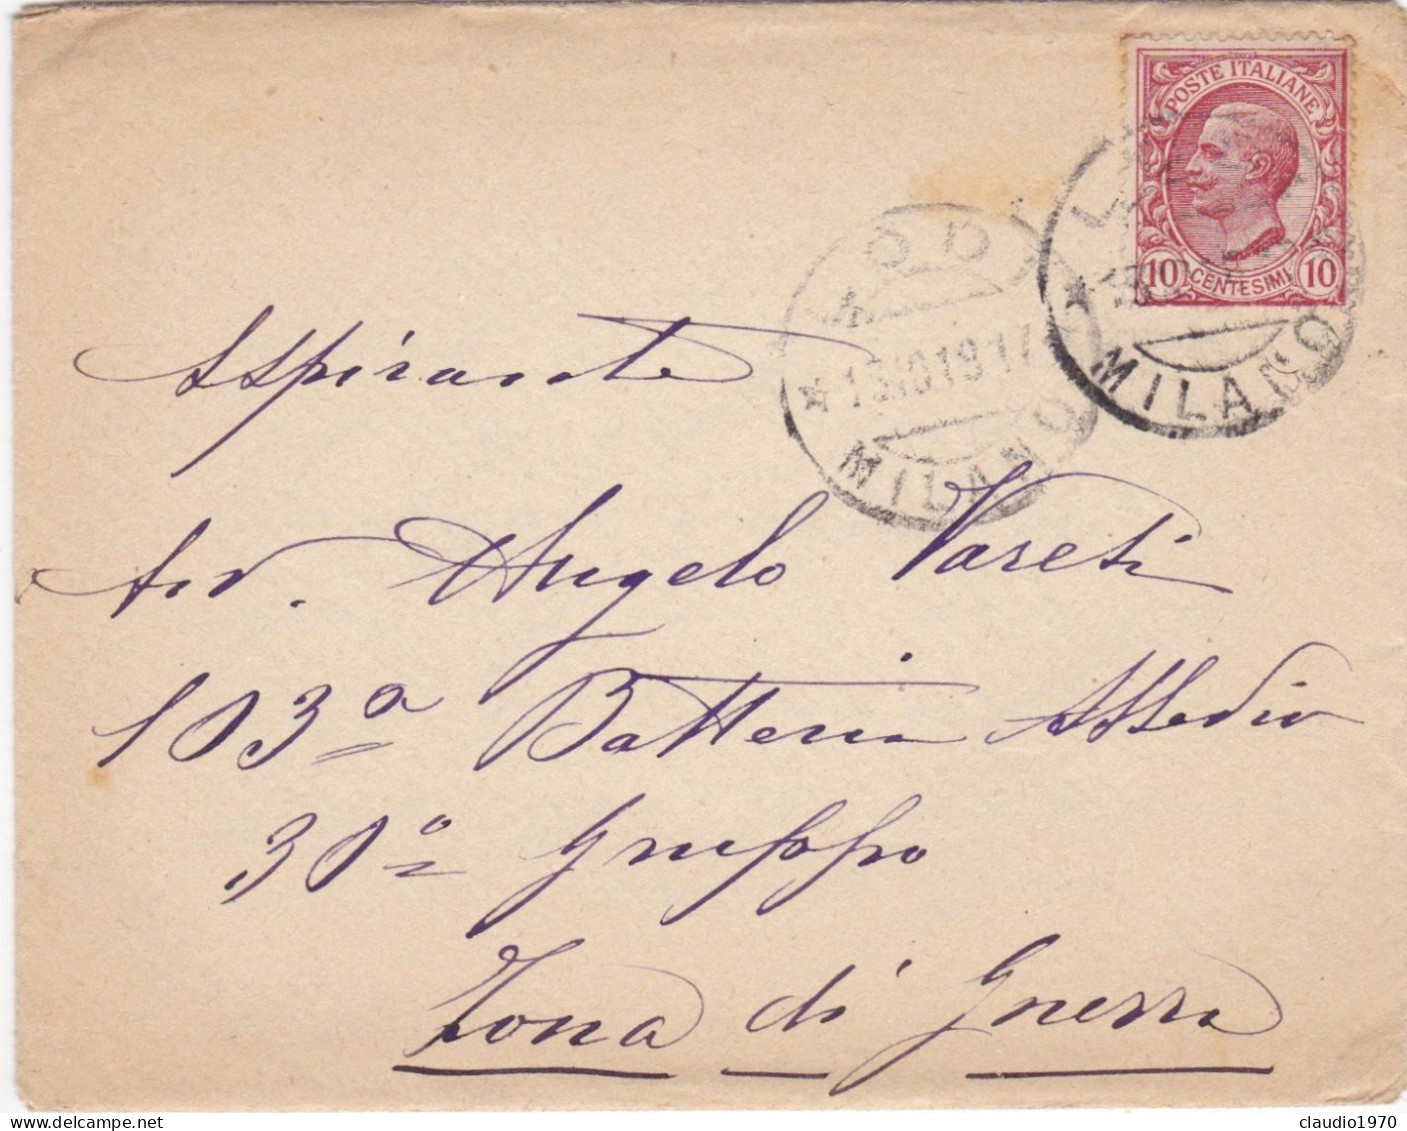 POSTE ITALIANE
10 CENTESIMI 10
LODI
MILANO
LODI
MILANO
Aspirante
Avv. Angelo Vareti
103ª Batteria Assedio
30º Gruppo
Zona di Guerra
claudio1970